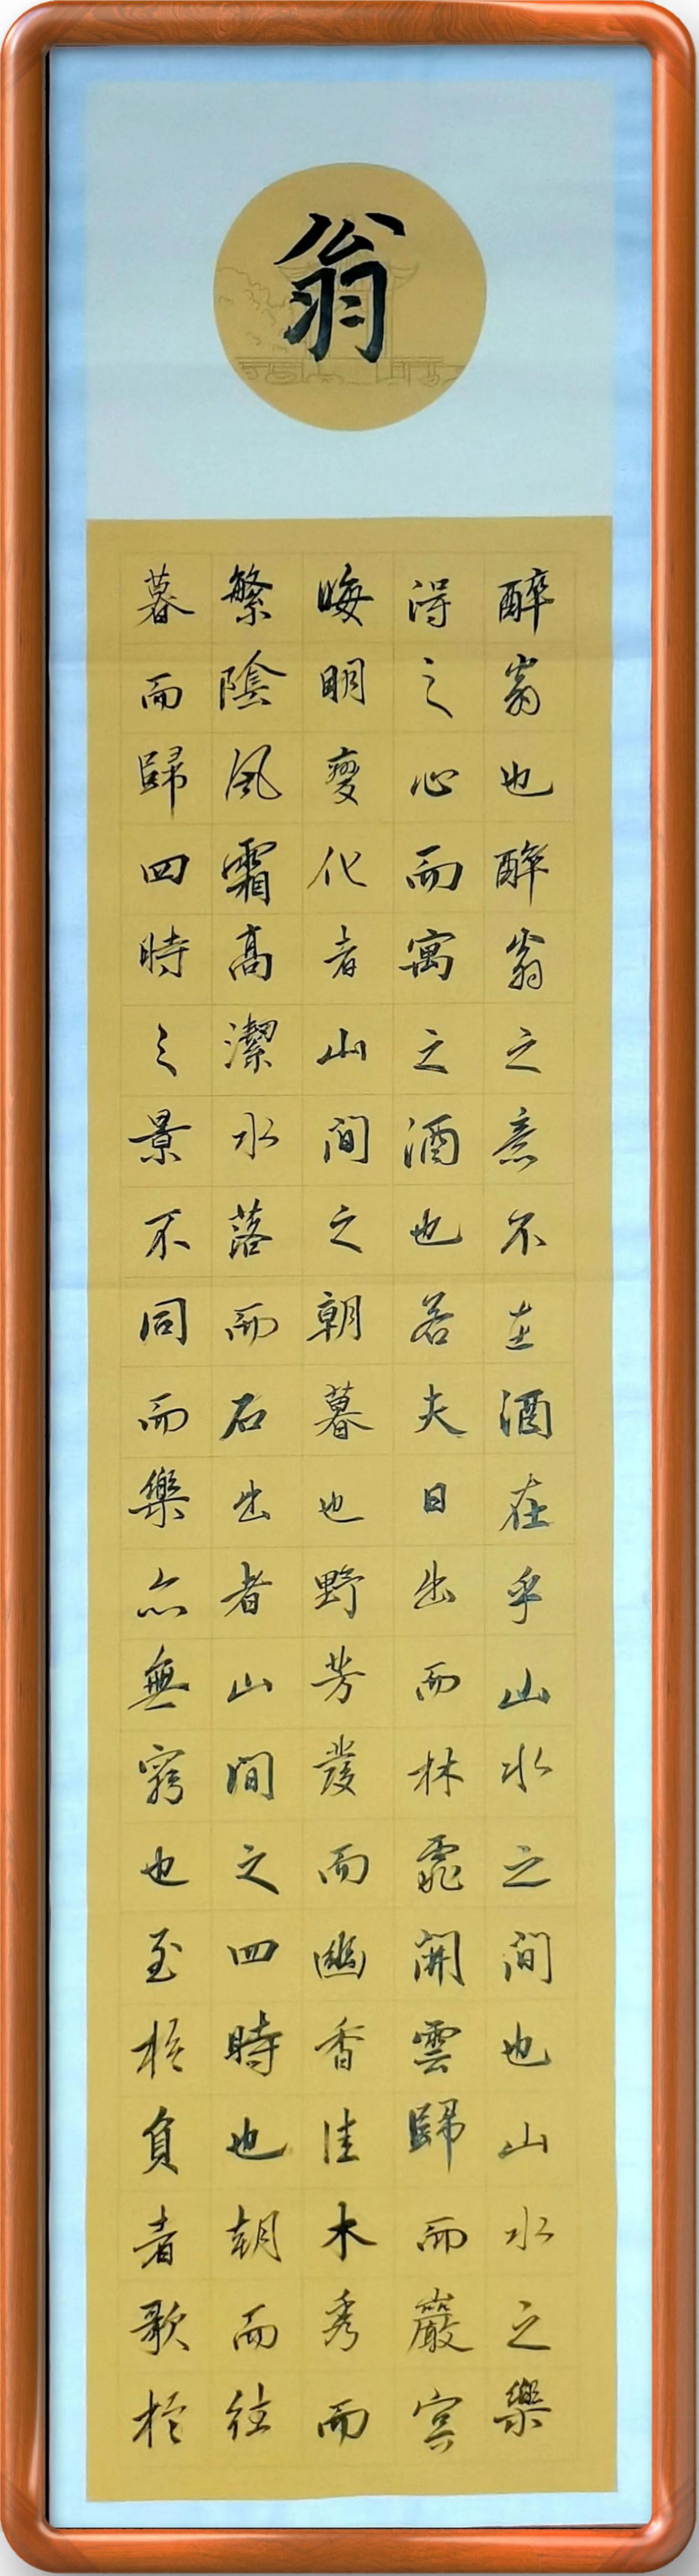 翁
醉翁也醉翁之意不在酒在乎山水之間也山水之樂
得之心而寓之酒也若夫日出而林霏開雲歸而巖冥
晦明變化者山間之朝暮也野芳發而幽香佳木秀而
繁陰風霜高潔水落而石出者山間之四時也朝而往
暮而歸四時之景不同而樂亦無窮也至於負者歌於